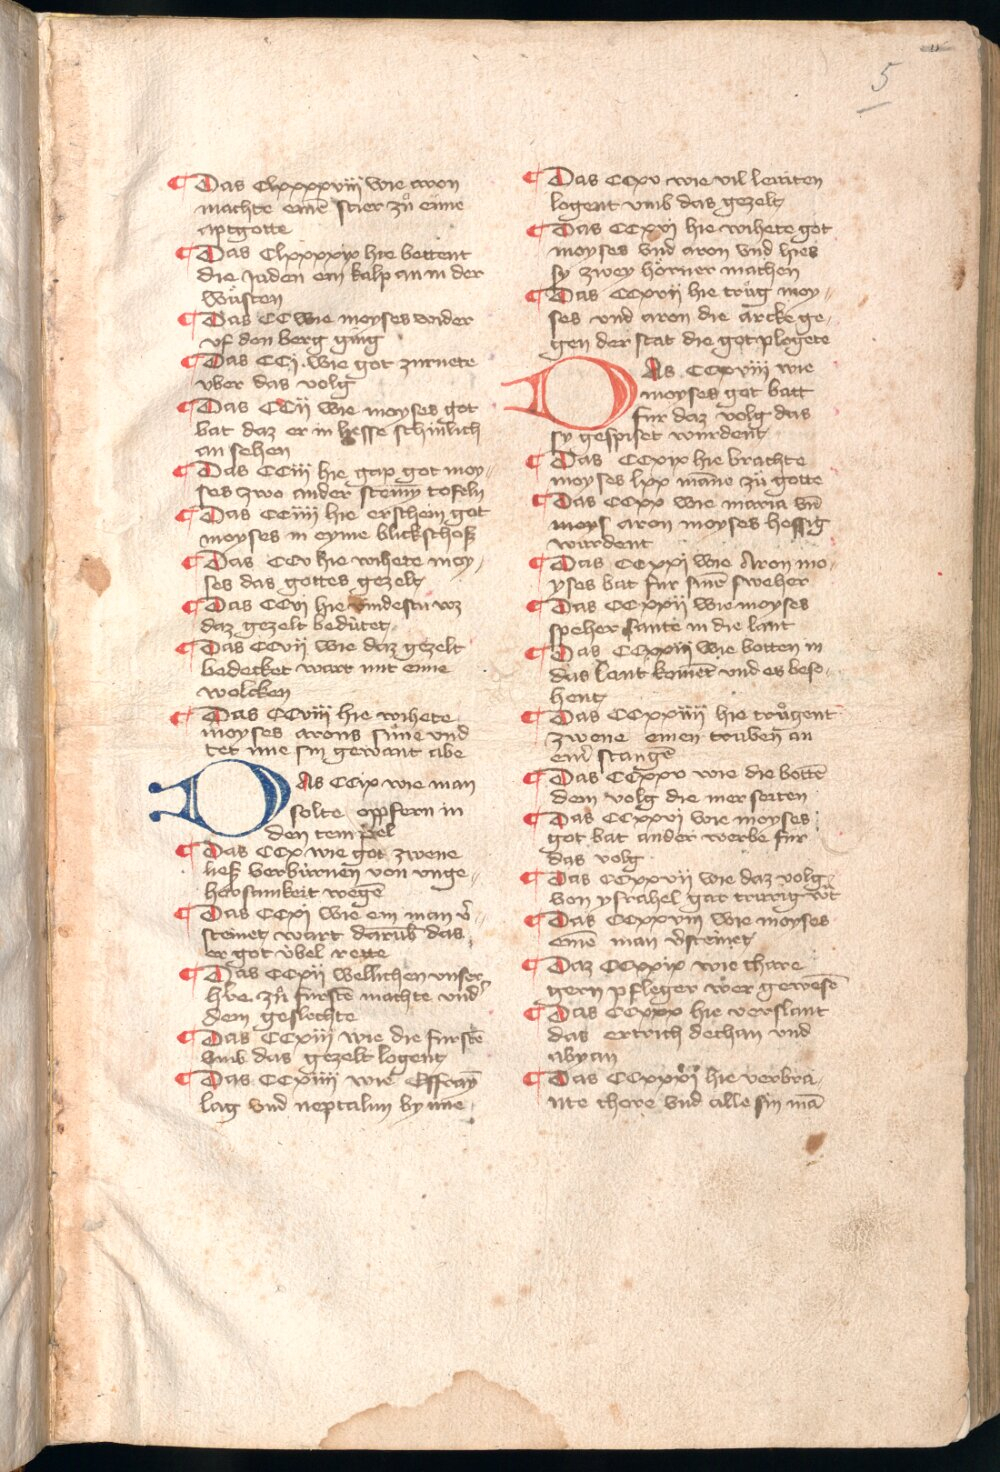 5
Das Clxxxxviii wie aron
machte eine͞ stier zů eime
aptgotte
Das Clxxxxix hie bettent
die Juden ein kalp an in der
wůsten
Das CC wie moyses wider
vf den berg ging
Das CCi. wie got zurnete
vber das volg
Das CCii wie moyses got
bat daz er in liesse schinlich
an sehen
Das CCiii hie gap got moy-
ses zwo ander steinin tofeln
Das CCiiii hie erschein got
moyses in eyme blickschosz
Das CCv hie wihete moy-
ses das gottes gezelt
Das CCvi hie vindestu wz
daz gezelt bedútet
Das CCvii wie daz gezelt
bedecket wart mit eime
wolcken
Das CCviii hie wihete
moyses arons súne vnd
tet ime sin gewant abe
DAs CCix wie man
solte oppfern in
den tempel
Das CCx wie got zwene
liesz verbúrnen von vnge-
horsamkeit wege͞
Das CCxi wie ein man v̾-
steinet wart darūb das
er got úbel rette
Das CCxii wellichen vnser
h̾re zů fúrste͞ machte vnd
dem geslehte
Das CCxiii wie die fúrste͞
vmb das gezelt logent
Das CCxiiii wie Effraÿ
lag vnd neptalim by ime
Das CCxv wie vil leuiten
logent vmb das gezelt
Das CCxvi hie wihete got
moyses vnd aron vnd hies
sy zwey hórner machen
Das CCxvii hie trůg moy-
ses vnd aron die arcke ge-
gen der stat die got plogete
DAs CCxviii wie
moyses got batt
fúr daz volg das
sy gespiset wurdent
Das CCxix hie brachte
moyses lxx man̄e zů gotte
Das CCxx wie maria vn̄
moys aron moyses hessig
wurdent
Das CCxxi wie Aron mo-
yses bat fúr sine͞ sweher
Das CCxxii wie moyses
speher sante in die lant
Das CCxxiii wie botten in
das lant kome͞t vnd es beso-
hent
Das CCxxiiii hie trůgent
zwene einen truben an
ein̾ stange͞
Das CCxxv wie die botte͞
dem volg die mer seiten
Das CCxxvi wie moyses
got bat ander werbe fúr
das volg
Das CCxxvii wie daz volg
von ysrahel gar trurig w̾t
Das CCxxviii wie moyses
eine͞ man v̾steinet
Daz CCxxix wie chare
gern pfleger wer gewese͞
Das CCxxx hie verslant
das ertrich dechan vnd
abyan
Das CCxxxi hie verbra-
nte chore vnd alle sin ma͞